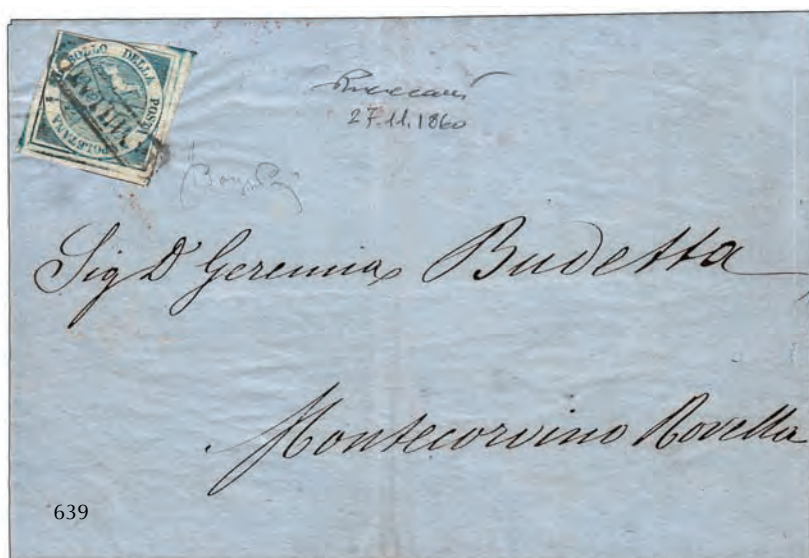 BOLLO DELLA POSTA NAPOLETANA
ANNULLATO
27.11.1860
Sig D Geremia Budetta
Montecorvino Rovella
639